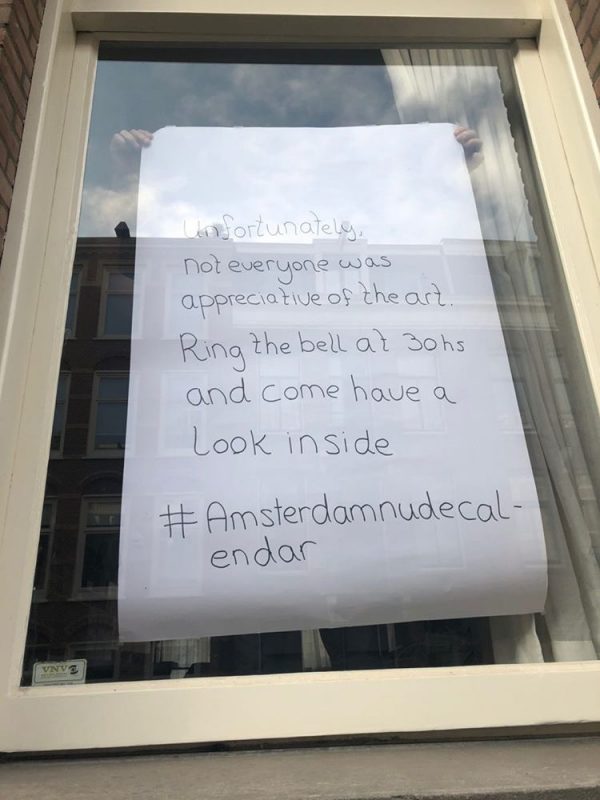 Unfortunately,
not everyone was
appreciative of the art.
Ring the bell at 30hs
and come have a
look inside
#Amsterdamnudecal-
endar
VNV